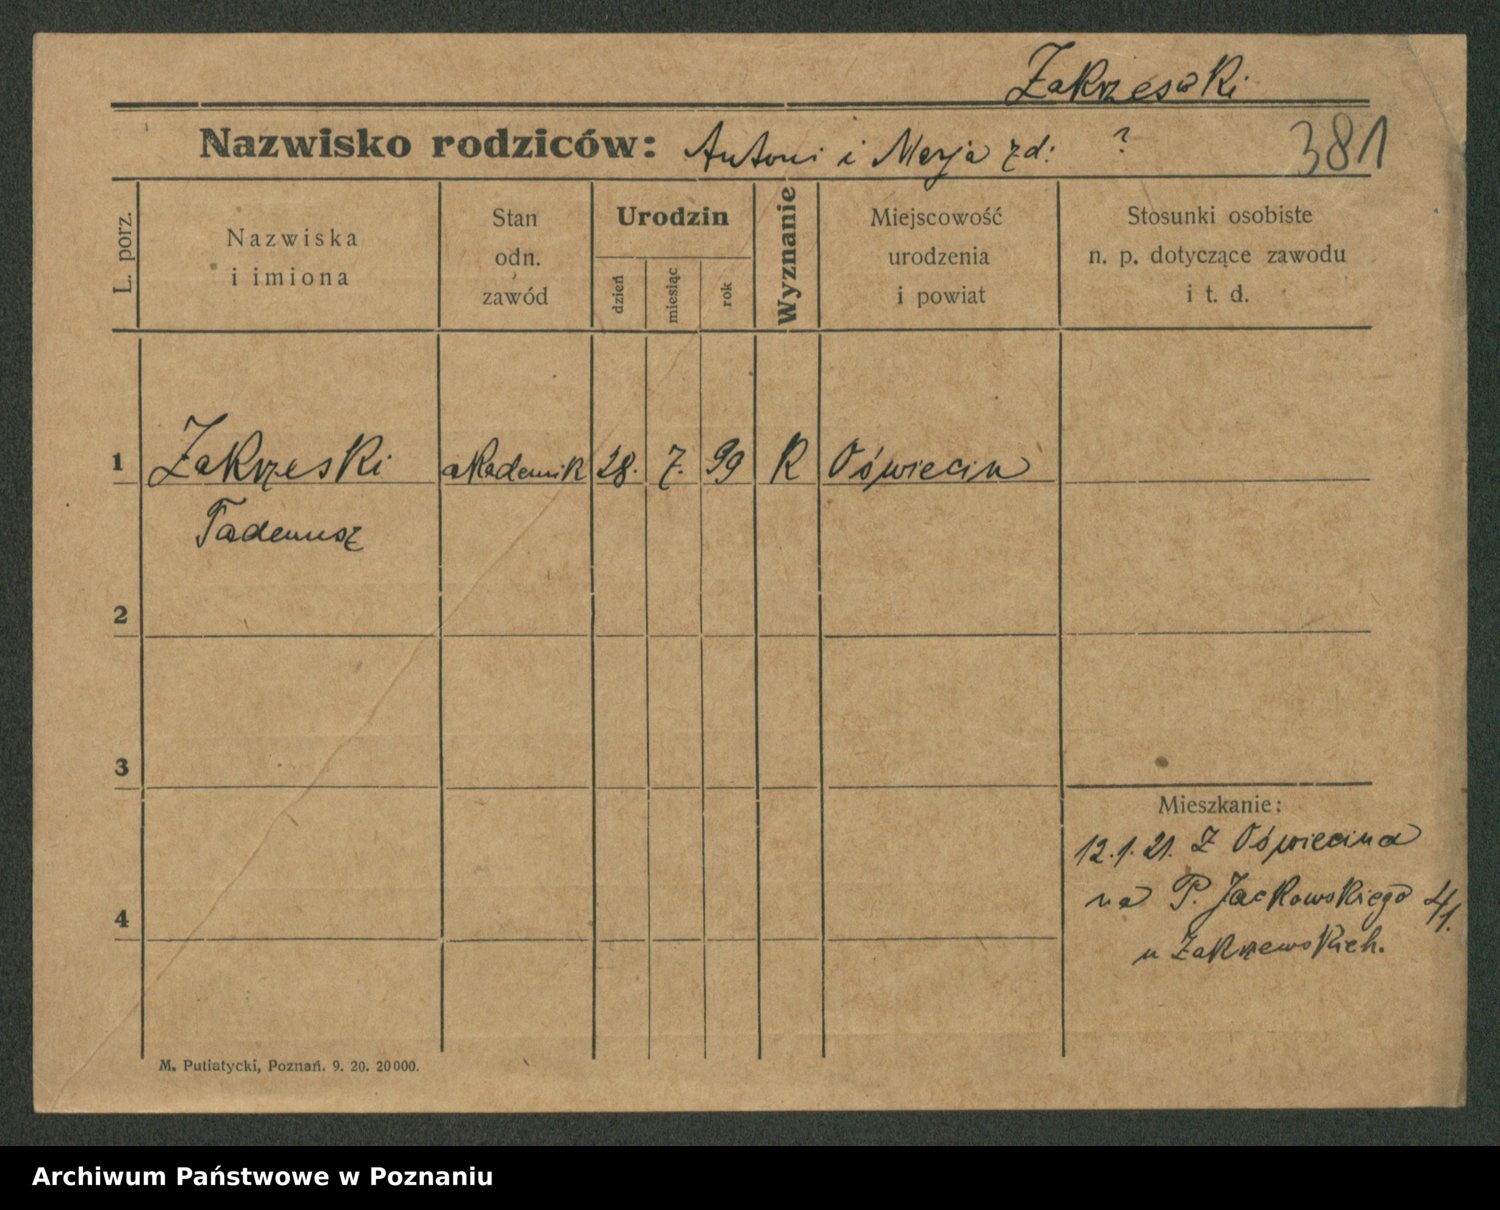 Zakrzeski
Nazwisko rodziców: Antoni i Marja zd: ?
381
L. porz.
Nazwiska
i imiona
Stan
odn.
zawód
Urodzin
dzień
miesiąc
rok
Wyznanie
Miejscowość
urodzenia
i powiat
Stosunki osobiste
n. p. dotyczące zawodu
i t. d.
1 Zakrzeski akademik 28. 7. 99 K Oświecim
Tadeusz
2
3
4
Mieszkanie:
12.1.21. z Oświecima
na P. Jackowskiego 4/1.
u Zakrzewskich.
M. Putiatycki, Poznań. 9. 20. 20000.
Archiwum Państwowe w Poznaniu